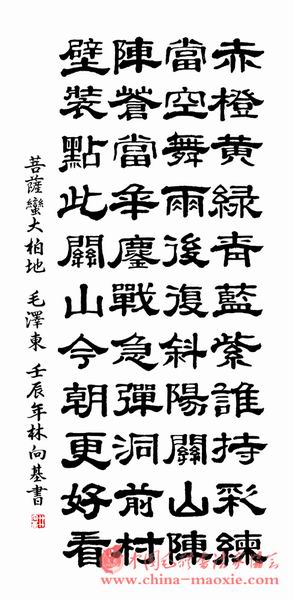 赤橙黄緑青藍紫誰持彩練
當空舞雨後復斜陽關山陣
陣蒼當年鏖戰急彈洞前村
壁裝點此關山今朝更好看
菩薩蠻大柏地 毛澤東 壬辰年林向基書
www.china-maoxie.com